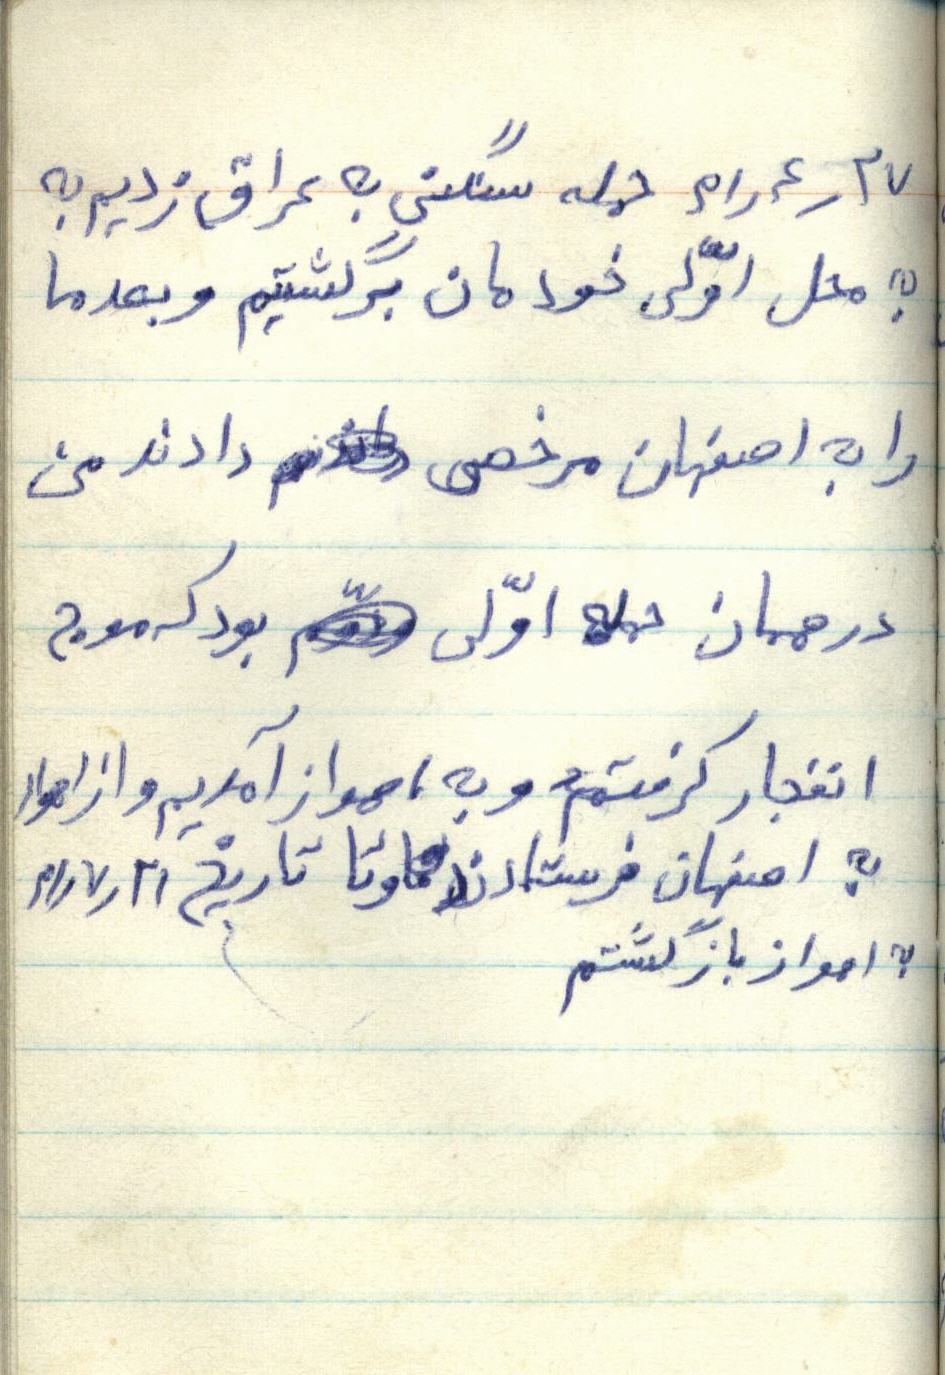 حمله سنگینی به عراق زدیم به
به محل اوّلی خودمان برگشتیم و بعد ما
را به اصفهان مرخصی دادند من
در همان حمله اوّلی بود که موج
انفجار گرفتم و به اهواز آمدیم و از اهواز
به اصفهان فرستادند و تا تاریخ
به اهواز بازگشتم